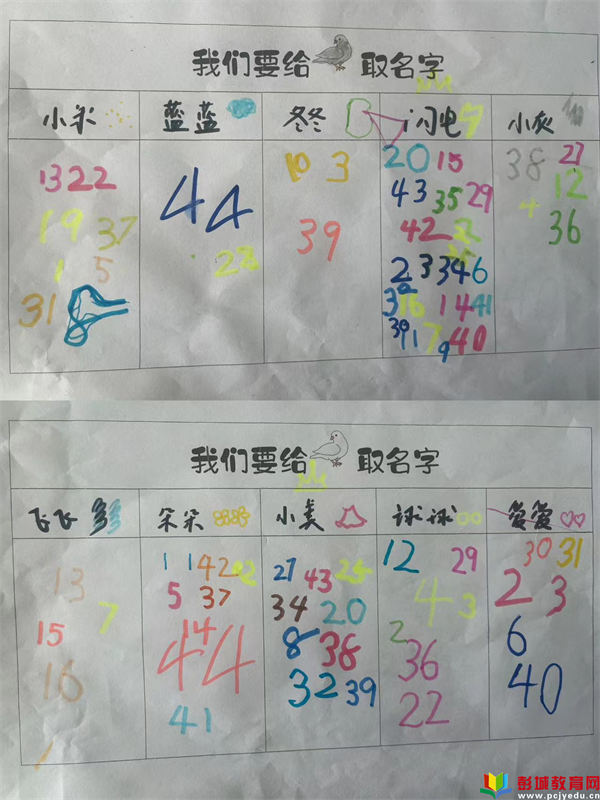 我们要给 取名字
小米 蓝蓝 冬冬 闪电 小灰
13 22 44 10 3 20 15 38 27
19 37 43 35 29 12
1 5 28 39 42 4 36
31 8 2 3 34 6
14 41
39 1 7 9 40
我们要给 取名字
飞飞 朵朵 小美 球球 爱爱
13 1 1 42 12 27 43 25 12 29 30 31
7 5 37 34 20 4 3 2 3
15 14 8 38 2 36 6
16 44 32 39 22 40
1 41
彭城教育网
www.pcjyedu.cn